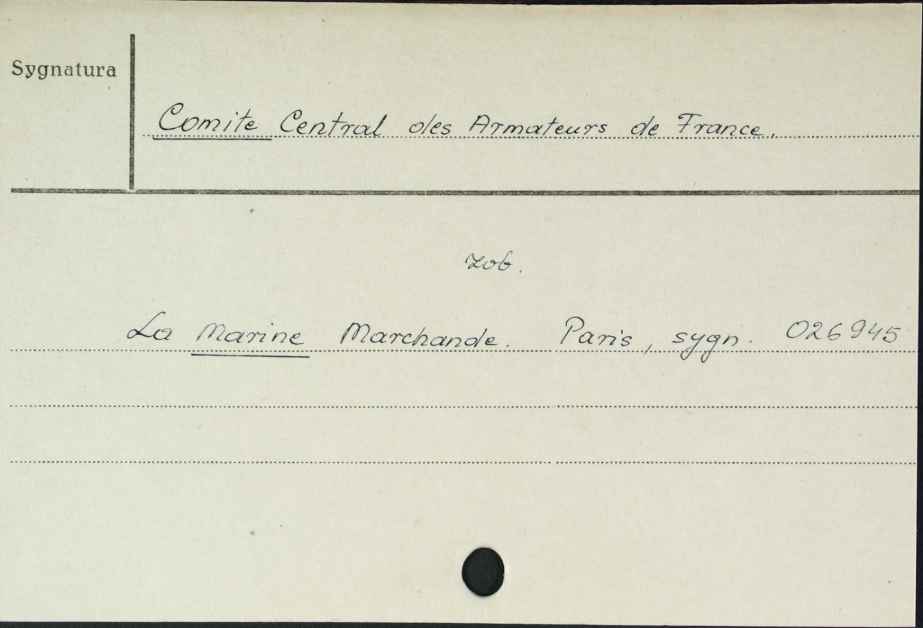 Sygnatura
Comite Central des Armateurs de France.
zob.
La Marine Marchande. Paris, sygn. 026945